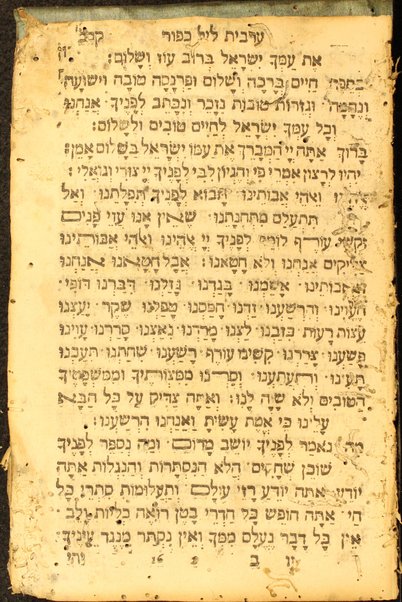 ערבית ליל כפור קכב
את עמך ישראל ברוב עוז ושלום:
בספר חיים ברכה ושלום ופרנסה טובה וישועה
ונחמה וגזרות טובות נזכר ונכתב לפניך אנחנו
וכל עמך ישראל לחיים טובים ולשלום:
ברוך אתה יי המברך את עמו ישראל בשלום אמן:
יהיו לרצון אמרי פי והגיון לבי לפניך יי צורי וגואלי:
ואלהי אבותינו תבוא לפניך תפלתנו ואל
תתעלם מתחנתנו שאין אנו עזי פנים
וקשי עורף לומר לפניך יי אלהינו ואלהי אבותינו
צדיקים אנחנו ולא חטאנו: אבל חטאנו אנחנו
ואבותינו אשמנו בגדנו גזלנו דברנו דופי:
העוינו והרשענו זדנו חמסנו טפלנו שקר יעצנו
עצות רעות כזבנו לצנו מרדנו נאצנו סררנו עוינו
פשענו צררנו קשינו עורף רשענו שחתנו תעבנו
תעינו ותעתענו וסרנו ממצותיך וממשפטיך
הטובים ולא שוה לנו: ואתה צדיק על כל הבא
עלינו כי אמת עשית ואנחנו הרשענו:
מה נאמר לפניך יושב מרום ומה נספר לפניך
שוכן שחקים הלא הנסתרות והנגלות אתה
יודע אתה יודע רזי עולם ותעלומות סתרי כל
חי אתה חופש כל חדרי בטן רואה כליות ולב
אין כל דבר נעלם ממך ואין נסתר מנגד עיניך
ב 16 ויהי